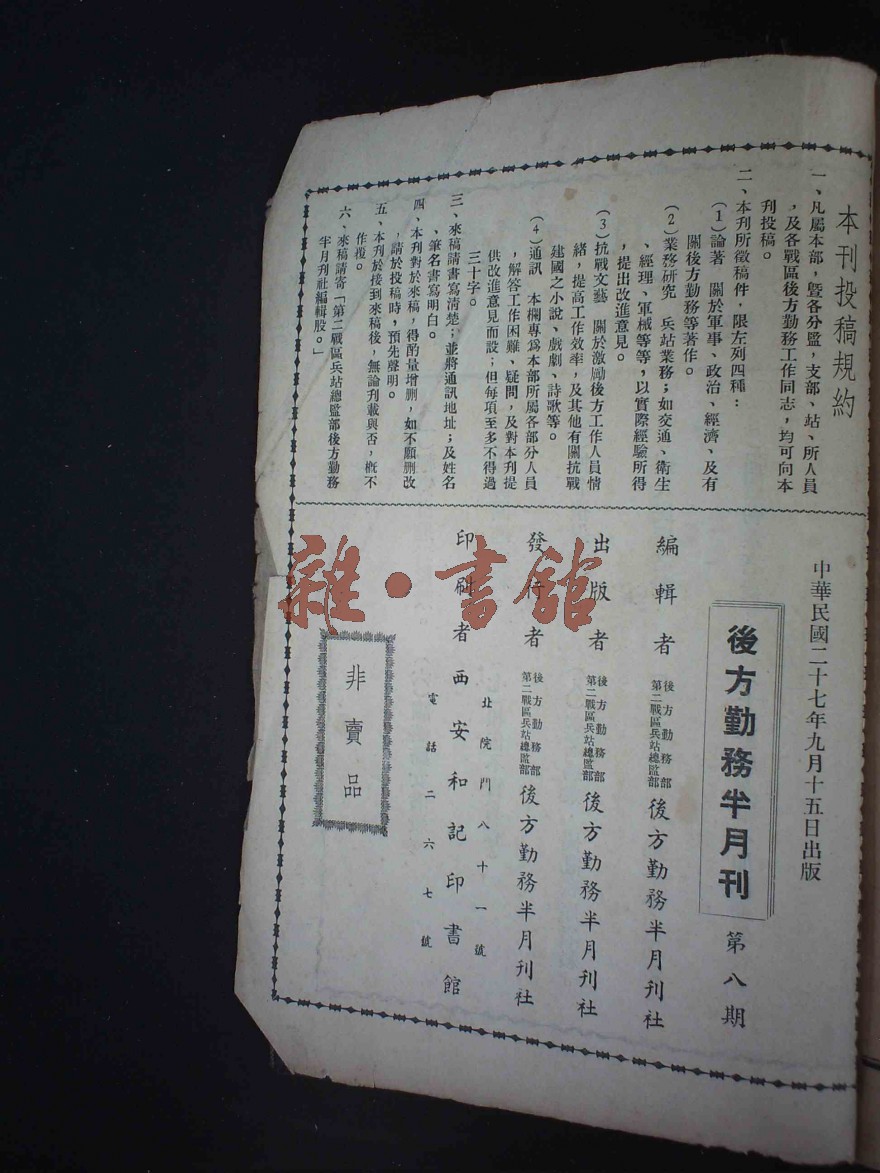 本刊投稿規約
一、凡屬本部，曁各分監，支部、站、所人員
，及各戰區後方勤務工作同志，均可向本
刊投稿。
二、本刊所徵稿件，限左列四種：
（1）論著　關於軍事、政治、經濟、及有
關後方勤務等著作。
（2）業務研究　兵站業務；如交通、衛生
、經理、軍械等等，以實際經驗所得
，提出改進意見。
（3）抗戰文藝　關於激勵後方工作人員情
緒，提高工作效率，及其他有關抗戰
建國之小說、戲劇、詩歌等。
（4）通訊　本欄專爲本部所屬各部分人員
，解答工作困難、疑問，及對本刊提
供改進意見而設；但每項至多不得過
三十字。
三、來稿請書寫清楚；並將通訊地址；及姓名
、筆名書寫明白。
四、本刊對於來稿，得酌量增删，如不願删改
，請於投稿時，預先聲明。
五、本刊於接到來稿後，無論刊載與否，概不
作復。
六、來稿請寄「第二戰區兵站總監部後方勤務
半月刊社編輯股。」
中華民國二十七年九月十五日出版
後方勤務半月刊　第八期
編輯者　後方勤務部第二戰區兵站總監部　後方勤務半月刊社
出版者　後方勤務部第二戰區兵站總監部　後方勤務半月刊社
發行者　後方勤務部第二戰區兵站總監部　後方勤務半月刊社
北院門八十一號
印刷者　西安和記印書館
電話二六七號
非賣品
雜·書館